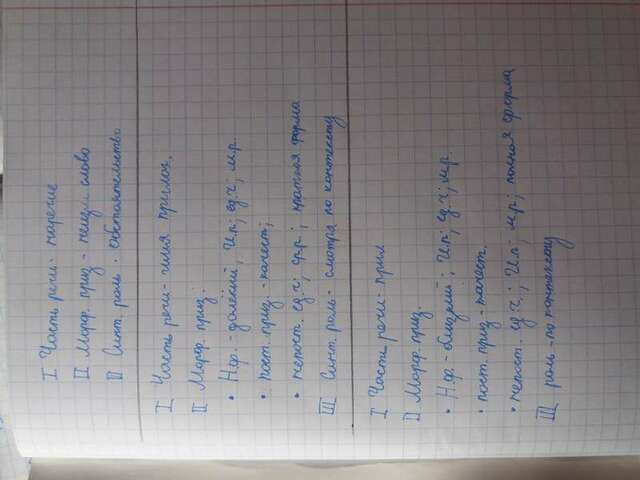 I Часть речи - наречие
II Морф. приз - неизм. слово
III Синт. роль - обстоятельство
I Часть речи - имя прилаг.
II Морф. приз:
• Н.ф. - далёкий; И.п; ед.ч; м.р.
• пост. приз. - качест;
• непост. ед.ч; ср.р; краткая форма
III Синт. роль - смотря по контексту
I Часть речи - прил
II Морф. приз.
• Н.ф - близкий; И.п; ед.ч; м.р.
• пост. приз - качест.
• непост. ед.ч; И.п; м.р; полная форма
III роль - по контексту